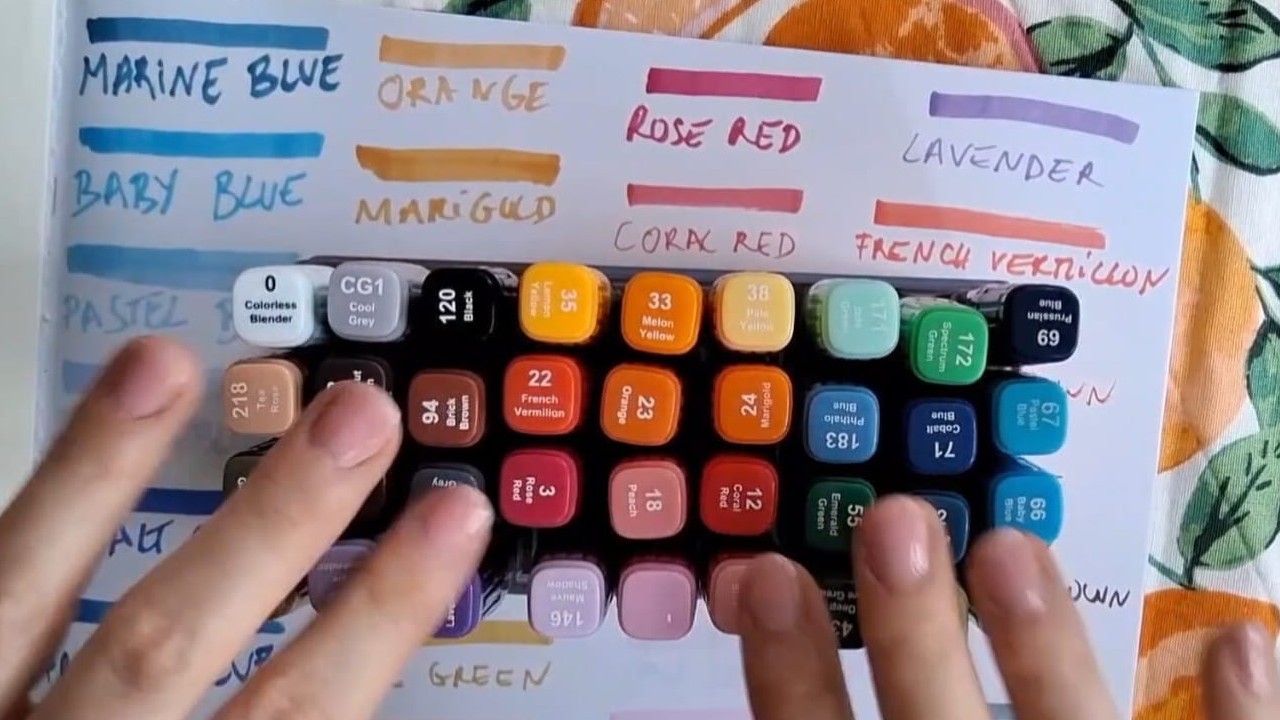 MARINE BLUE
ORANGE
ROSE RED
LAVENDER
BABY BLUE
MARIGOLD
CORAL RED
FRENCH VERMILLON
PASTEL
0
Colorless
Blender
CG1
Cool
Grey
120
Black
35
Lemon
Yellow
33
Melon
Yellow
38
Pale
Yellow
171
172
Spectrum
Green
69
Prussian
Blue
218
Tea
Rose
94
Brick
Brown
22
French
Vermilion
23
Orange
24
Marigold
183
Phthalo
Blue
71
Cobalt
Blue
67
Pastel
Blue
Grey
3
Rose
Red
18
Peach
12
Coral
Red
55
Emerald
Green
66
Baby
Blue
146
Mauve
Shadow
43
Deep
GREEN